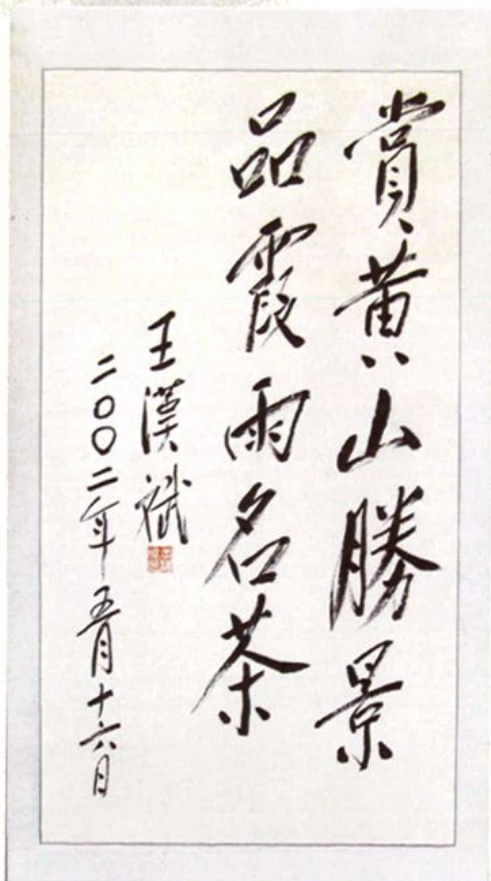 賞黄山勝景
品霞雨名茶
王漢斌
二〇〇二年五月十六日